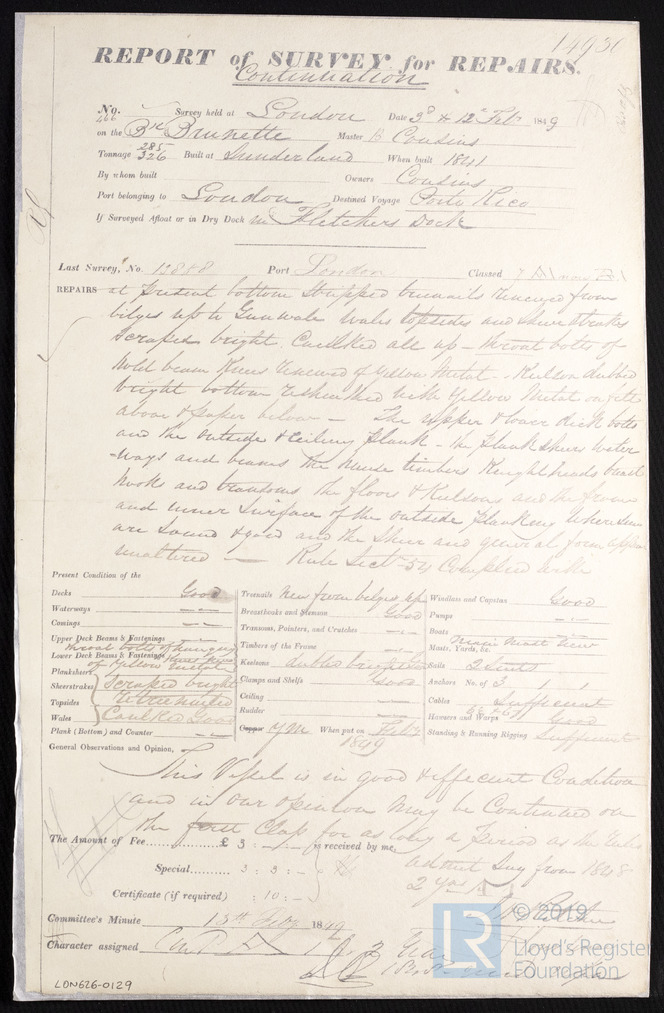 REPORT of SURVEY for REPAIRS.
Continuation
No. 466 Survey held at London Date 3d & 12th Feb 1849
on the Bn Brunette Master B Cousins
Tonnage 285 326 Built at Sunderland When built 1841
By whom built Owners Cousins
Port belonging to London Destined Voyage Porto Rico
If Surveyed Afloat or in Dry Dock in Fletchers Dock
Last Survey, No. 12888 Port London Classed 7 A1
REPAIRS at present bottom stripped treenails renewed from
bilges up to Gunwale Wales topsides and Sheerstrakes
Scraped bright. Caulked all up - throat bolts of
Hold beam Knees renewed of Yellow Metal. Keelson dubbed
bright bottom resheathed with Yellow Metal on felt
above & paper below - The upper & lower deck bolts
and the outside & Ceiling plank - the plank sheers water
-ways and beams the inside timbers Knightheads breast
hooks and transoms the floors & Keelsons and the frame
and inner surface of the outside planking where seen
are sound & good and the Sheer and general form appear
unaltered - Rule Sect 54 Complied with
Present Condition of the
Decks Good
Waterways
Comings
Upper Deck Beams & Fastenings
throat bolts of hanging
Lower Deck Beams & Fastenings
of Yellow Metal
Plansheers
Sheerstrakes Scraped bright
Topsides
Wales Caulked Good
Plank (Bottom) and Counter
Treenails New from bilges up
Breasthooks and Stemson Good
Transoms, Pointers, and Crutches
Timbers of the Frame
Keelsons dubbed bright
Clamps and Shelfs Good
Ceiling
Rudder
Copper YM When put on Feb 1849
Windlass and Capstan Good
Pumps
Boats
Main Mast New
Masts, Yards, &c.
Sails 2 Suits
Anchors No. of 3 1 1
Cables Sufficient
Hawsers and Warps Good
Standing & Running Rigging Sufficient
General Observations and Opinion,
This Vessel is in good & efficient Condition
and in our opinion may be Continued on
the first Class for as long a Period as the Rules
admit Say from 1848
2 Yrs
The Amount of Fee £ 3 : - : - is received by me,
Special 3 : 3 : -
Certificate (if required) : 10 : -
Committee's Minute 13th Feby 1849
Character assigned
LON626-0129
© 2019
LR
Lloyd's Register
Foundation